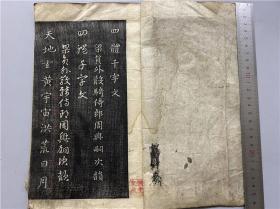 四體千字文
梁員外散騎侍郎周興嗣次韻
四體千字文
梁員外散騎侍郎周興嗣次韻
天地玄黃宇宙洪荒日月